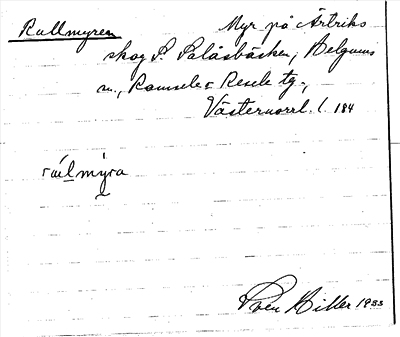 Rullmyren Myr på Artriks
skog S. Palåsbäcken, Helgums
sn., Ramsele o Resele tg.,
Västernorrl. l. 184
rúlmýra
Sven Hiller 1933